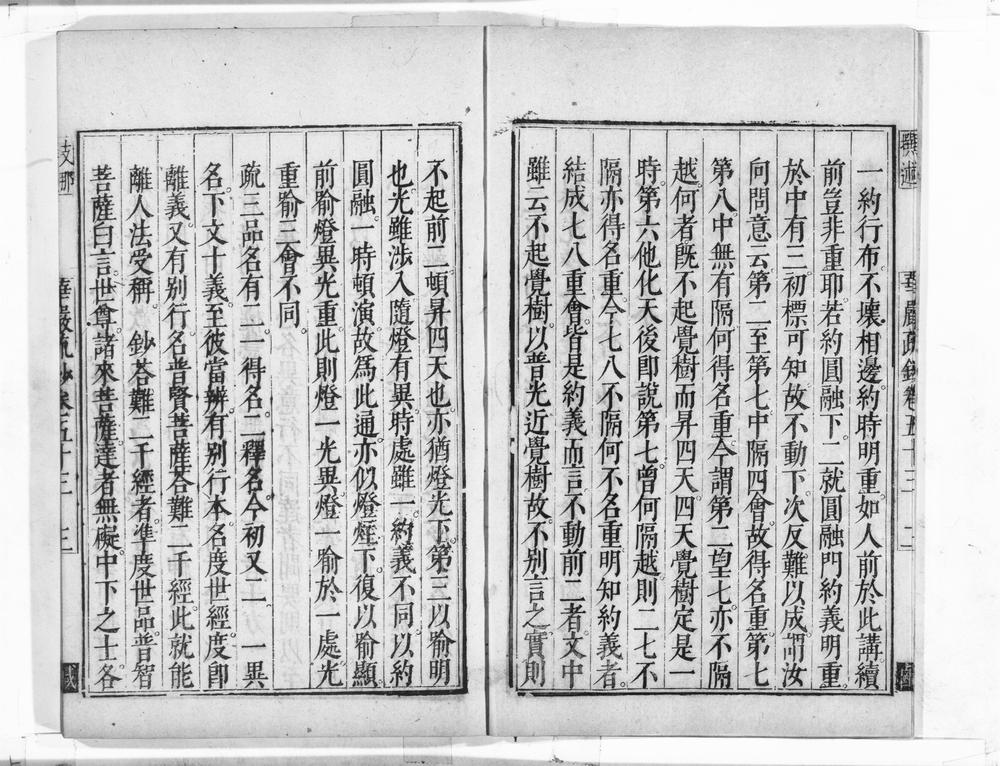 撰述
華嚴疏鈔卷五十三
一約行布不壞相邊約時明重如人前於此講續
前豈非重耶若約圓融下二就圓融門約義明重
於中有三初標可知故不動下次反難以成謂汝
向問意云第二至第七中隔四會故得名重第七
第八中無有隔何得名重今謂第二望七亦不隔
越何者既不起覺樹而昇四天四天覺樹定是一
時第六他化天後即說第七曾何隔越則二七不
隔亦得名重今七八不隔何不名重明知約義者
結成七八重會皆是約義而言不動前二者文中
雖云不起覺樹以普光近覺樹故不別言之實則
不起前二頓昇四天也亦猶燈光下第三以喻明
也光雖涉入隨燈有異時處雖一約義不同以約
圓融一時頓演故爲此通亦似燈煙下復以喻顯
前喻燈異光重此則燈一光異燈一喻於一處光
重喻三會不同
疏三品名有二一得名二釋名今初又二一異
名下文十義至彼當辨有別行本名度世經度即
離義又有別行名普賢菩薩荅難二千經此就能
離人法受稱 鈔荅難二千經者準度世品普智
菩薩白言世尊諸來菩薩達者無礙中下之士各
支那
華嚴疏鈔卷五十三 三